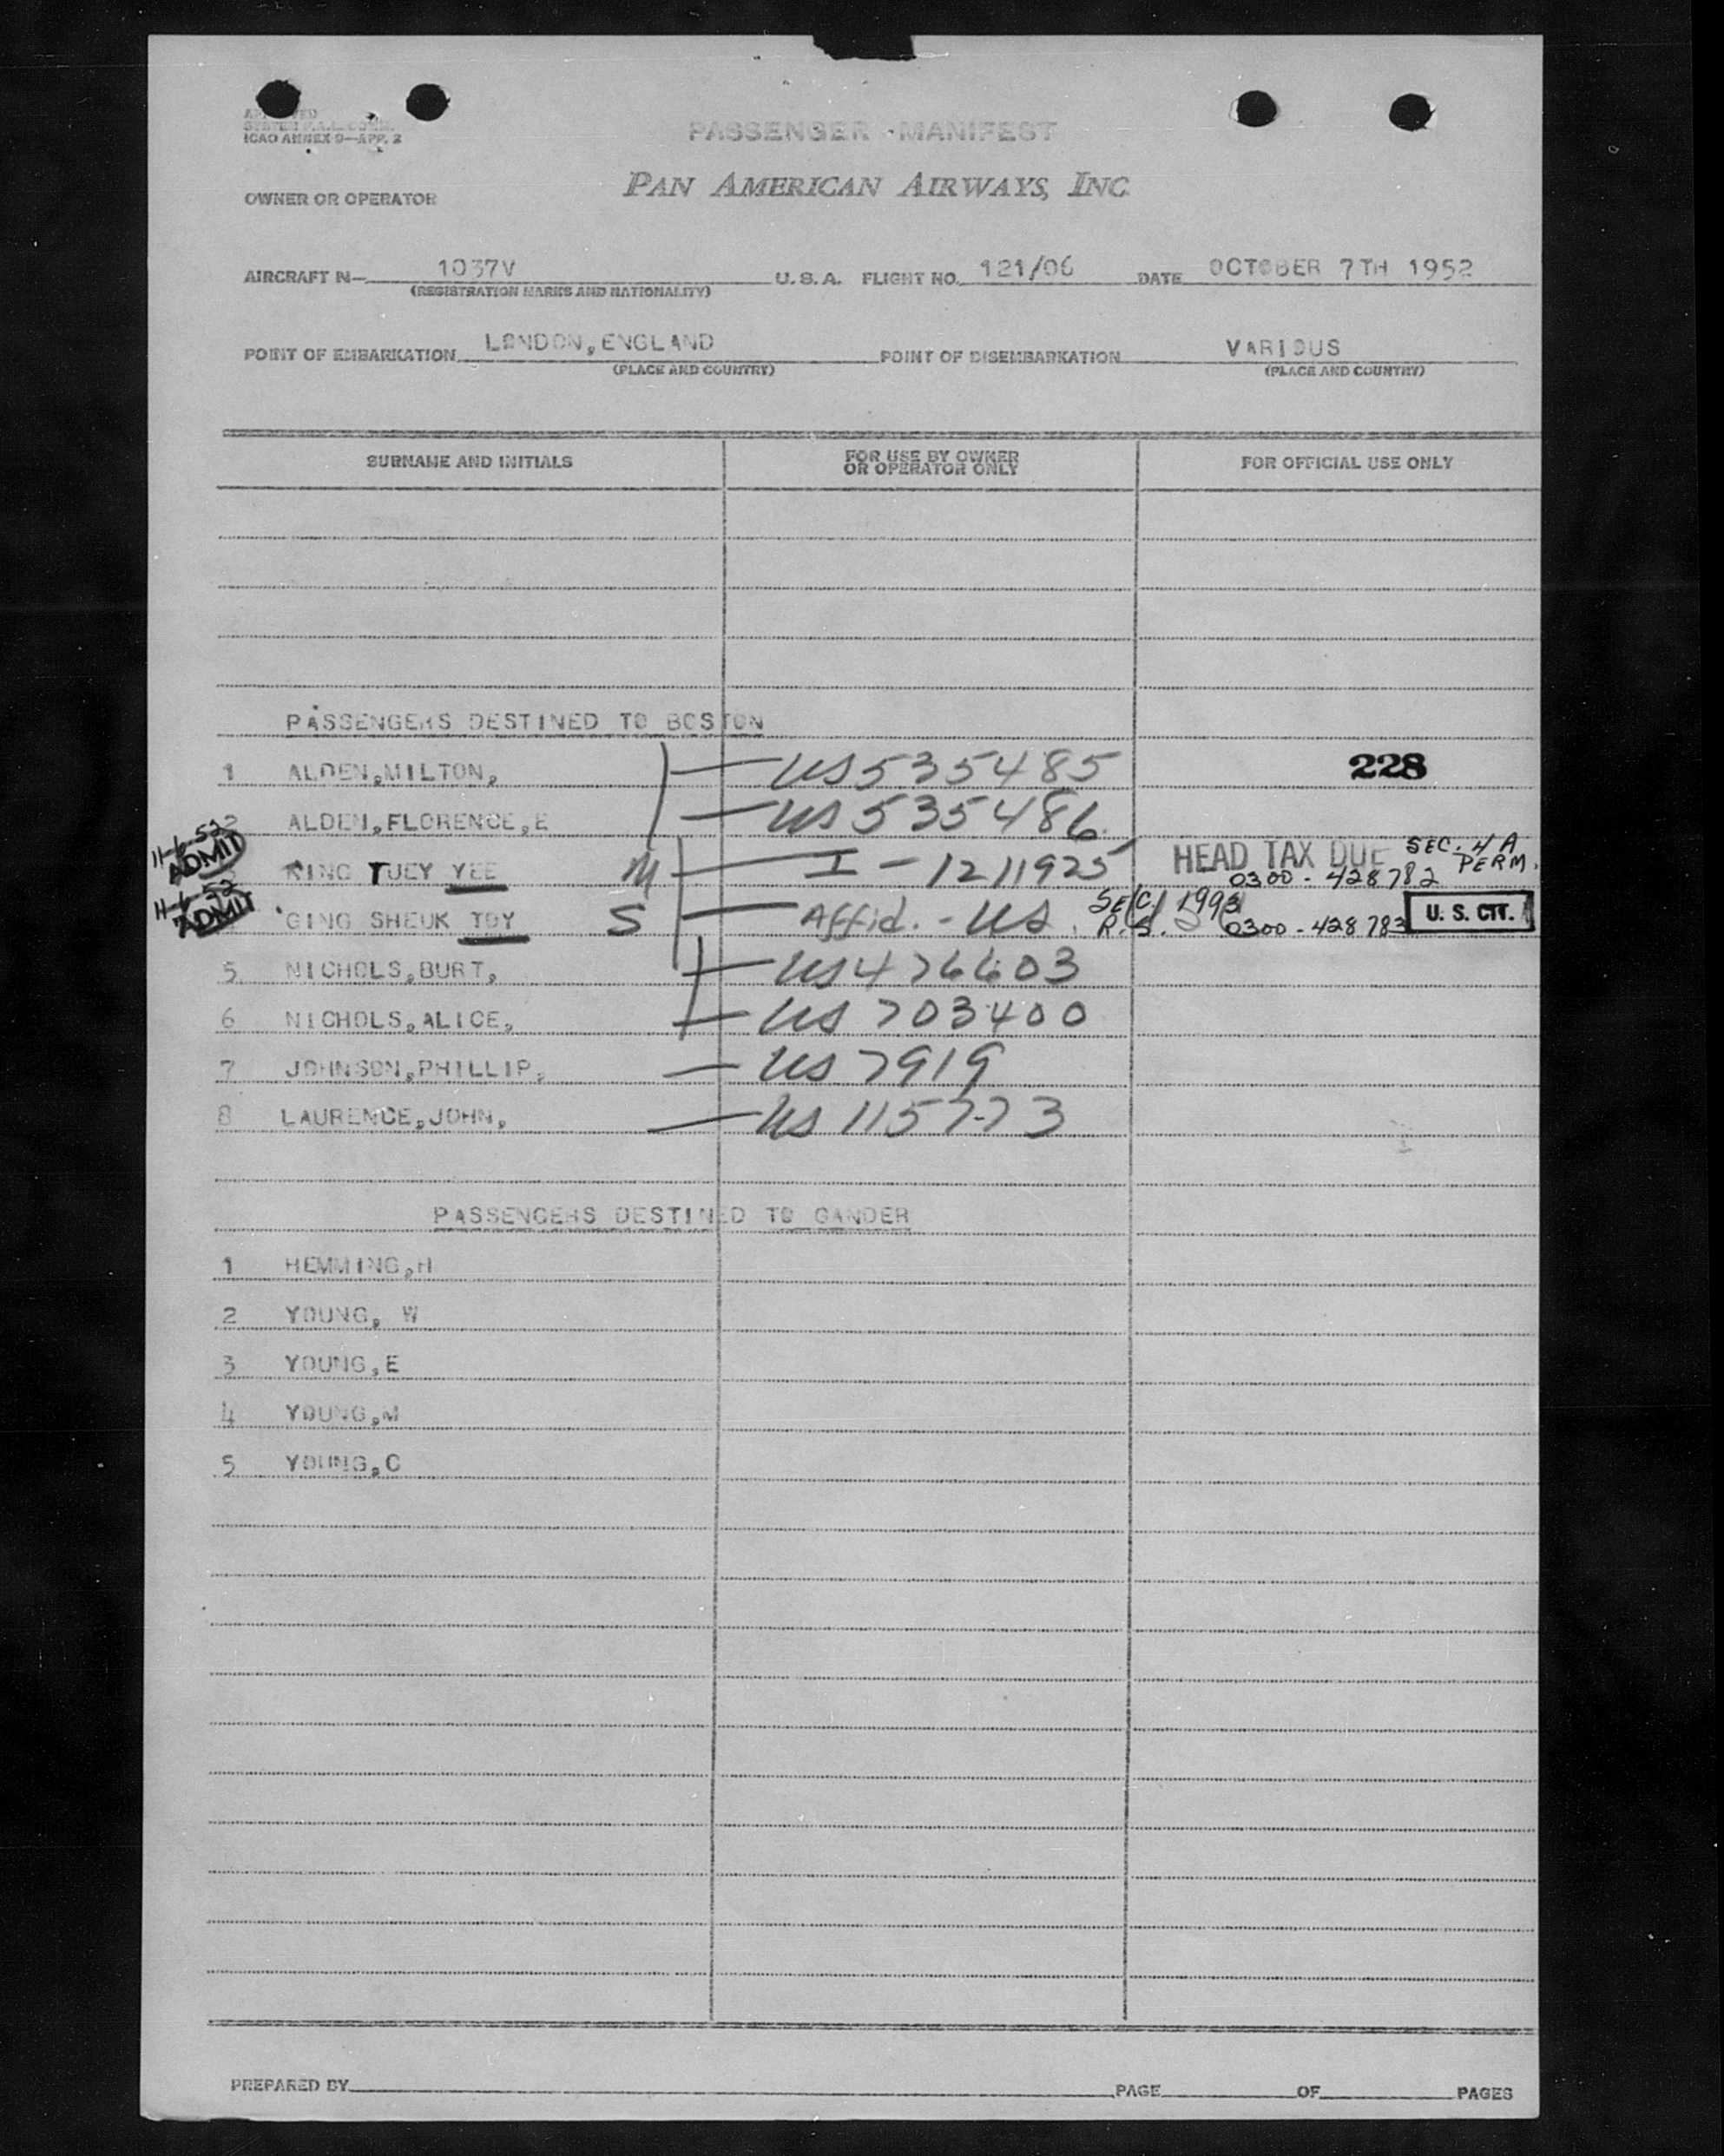 PASSENGER MANIFEST
ICAO ANNEX 9—APP. 2
PAN AMERICAN AIRWAYS, INC.
OWNER OR OPERATOR
AIRCRAFT N— 1037V U. S. A. FLIGHT NO. 121/06 DATE OCTOBER 7TH 1952
(REGISTRATION MARKS AND NATIONALITY)
POINT OF EMBARKATION LONDON, ENGLAND POINT OF DISEMBARKATION VARIOUS
(PLACE AND COUNTRY) (PLACE AND COUNTRY)
SURNAME AND INITIALS FOR USE BY OWNER OR OPERATOR ONLY FOR OFFICIAL USE ONLY
PASSENGERS DESTINED TO BOSTON
1 ALDEN,MILTON, US 535485 228
2 ALDEN,FLORENCE,E US 535486
11-6-52 ADMIT 3 TUEY YEE M I - 1211925 HEAD TAX DUE SEC. 4 A PERM.
0300 - 428782
11-6-52 ADMIT GING SHEUK TOY S Affid. - US SEC. 1993 R.S. 0300 - 428783 U. S. CIT.
5 NICHOLS,BURT, US 476603
6 NICHOLS,ALICE, US 703400
7 JOHNSON,PHILLIP, US 7919
8 LAURENCE,JOHN, US 115773
PASSENGERS DESTINED TO GANDER
1 HEMMING,H
2 YOUNG, W
3 YOUNG,E
4 YOUNG,M
5 YOUNG,C
PREPARED BY PAGE OF PAGES